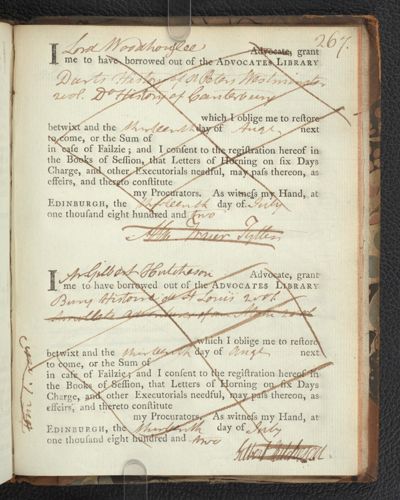 267.
I Lord Woodhouslee Advocate, grant
me to have borrowed out of the ADVOCATES LIBRARY
Darts History of St Peters Westminster
2 vol. Do History of Canterbury
which I oblige me to reſtore
betwixt and the thirteenth day of Augt next
to come, or the Sum of
in caſe of Failzie; and I conſent to the regiſtration hereof in
the Books of Seſſion, that Letters of Horning on ſix Days
Charge, and other Executorials needful, may paſs thereon, as
effeirs, and thereto conſtitute
my Procurators. As witneſs my Hand, at
EDINBURGH, the thirteenth day of July
one thouſand eight hundred and two
Alexr Fraser Tytler
I Mr Gilbert Hutcheson Advocate, grant
me to have borrowed out of the ADVOCATES LIBRARY
Bury Histoire de St Louis 2 vol.
which I oblige me to reſtore
betwixt and the thirteenth day of Augt next
to come, or the Sum of
in caſe of Failzie; and I conſent to the regiſtration hereof in
the Books of Seſſion, that Letters of Horning on ſix Days
Charge, and other Executorials needful, may paſs thereon, as
effeirs, and thereto conſtitute
my Procurators. As witneſs my Hand, at
EDINBURGH, the thirteenth day of July
one thouſand eight hundred and two
Gilbert Hutcheson